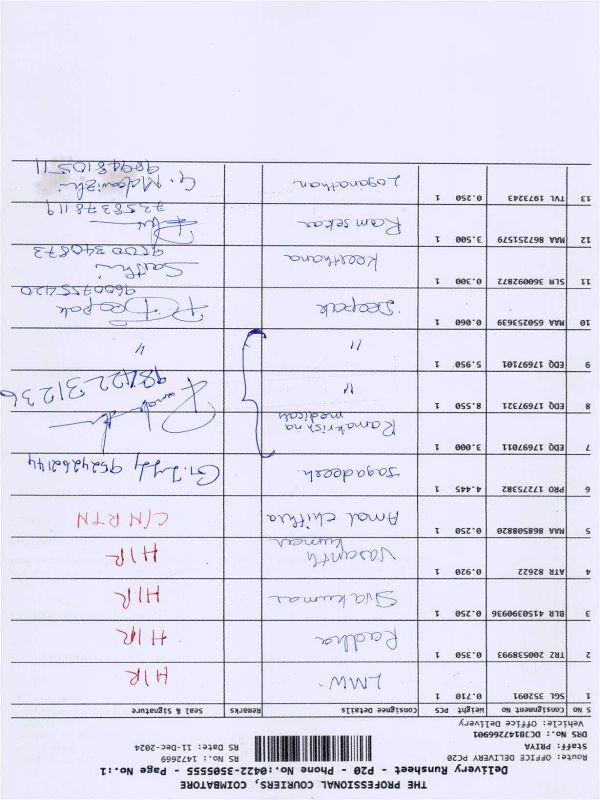 THE PROFESSIONAL COURIERS, COIMBATORE
Delivery Runsheet - P20 - Phone No.:0422-3505555 - Page No.:1
Route: OFFICE DELIVERY PC20 RS No.: 1472669
Staff: PRIYA RS Date: 11-Dec-2024
DRS No.: DCJB14726901
Vehicle: Office Delivery
S No Consignment No Weight PCS Consignee Details Remarks Seal & Signature
1 SGL 352091 0.710 1 LMW H/R
2 TRZ 200538993 0.350 1 Radha H/R
3 BLR 4150390936 0.250 1 Sivakumar H/R
4 ATR 82622 0.920 1 Vasanth kumar H/R
5 MAA 868508820 0.250 1 Amal chithra C/N RTN
6 PRO 17275382 4.445 1 Jagadeesh 9524262144
7 EDQ 17697011 3.000 1 Ramakrishna medicals
8 EDQ 17697321 8.550 1 " 98422 31236
9 EDQ 17697101 5.950 1 " "
10 MAA 650253639 0.060 1 Deepak Deepak 9600755420
11 SLM 360092872 0.300 1 Keerthana Santhi 9500340873
12 MAA 867251579 3.500 1 Ramsekar 7358378119
13 TVL 1973243 0.250 1 Loganathan G. Malarvizhi 9894810511